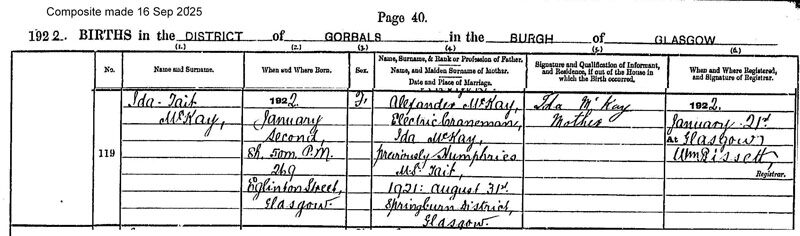 Composite made 16 Sep 2025
Page 40.
1922. BIRTHS in the DISTRICT of GORBALS in the BURGH of GLASGOW
(1.) (2.) (3.) (4.) (5.) (6.)
No.
Name and Surname.
When and Where Born.
Sex.
Name, Surname, & Rank or Profession of Father.
Name, and Maiden Surname of Mother.
Date and Place of Marriage.
Signature and Qualification of Informant,
and Residence, if out of the House in
which the Birth occurred.
When and Where Registered,
and Signature of Registrar.
119
Ida Tait
McKay,
1922,
January
Second,
5h. 50m P.M.
269
Eglinton Street,
Glasgow.
F.
Alexander McKay,
Electric Craneman,
Ida McKay,
previously Humphries
M.S. Tait,
1921: August 31st
Springburn District,
Glasgow.
Ida McKay
Mother
1922,
January 21st
At Glasgow
Wm Bissett,
Registrar.